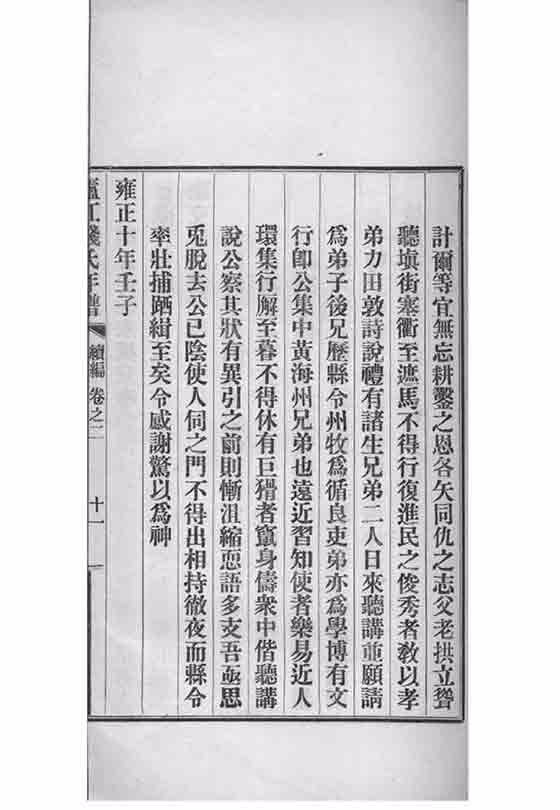 計爾等宜無忘耕鑿之恩各矢同仇之志父老拱立聳
聽塡街塞衢至遮馬不得行復進民之俊秀者敎以孝
弟力田敦詩說禮有諸生兄弟二人日來聽講並願請
爲弟子後兄歷縣令州牧爲循良吏弟亦爲學博有文
行卽公集中黃海州兄弟也遠近習知使者樂易近人
環集行廨至暮不得休有巨猾者竄身儔衆中偕聽講
說公察其狀有異引之前則慚沮縮恧語多支吾亟思
兎脫去公已陰使人伺之門不得出相持徹夜而縣令
率壯捕跴緝至矣令感謝驚以爲神
雍正十年壬子
廬江錢氏年譜 續編 卷之二 十一